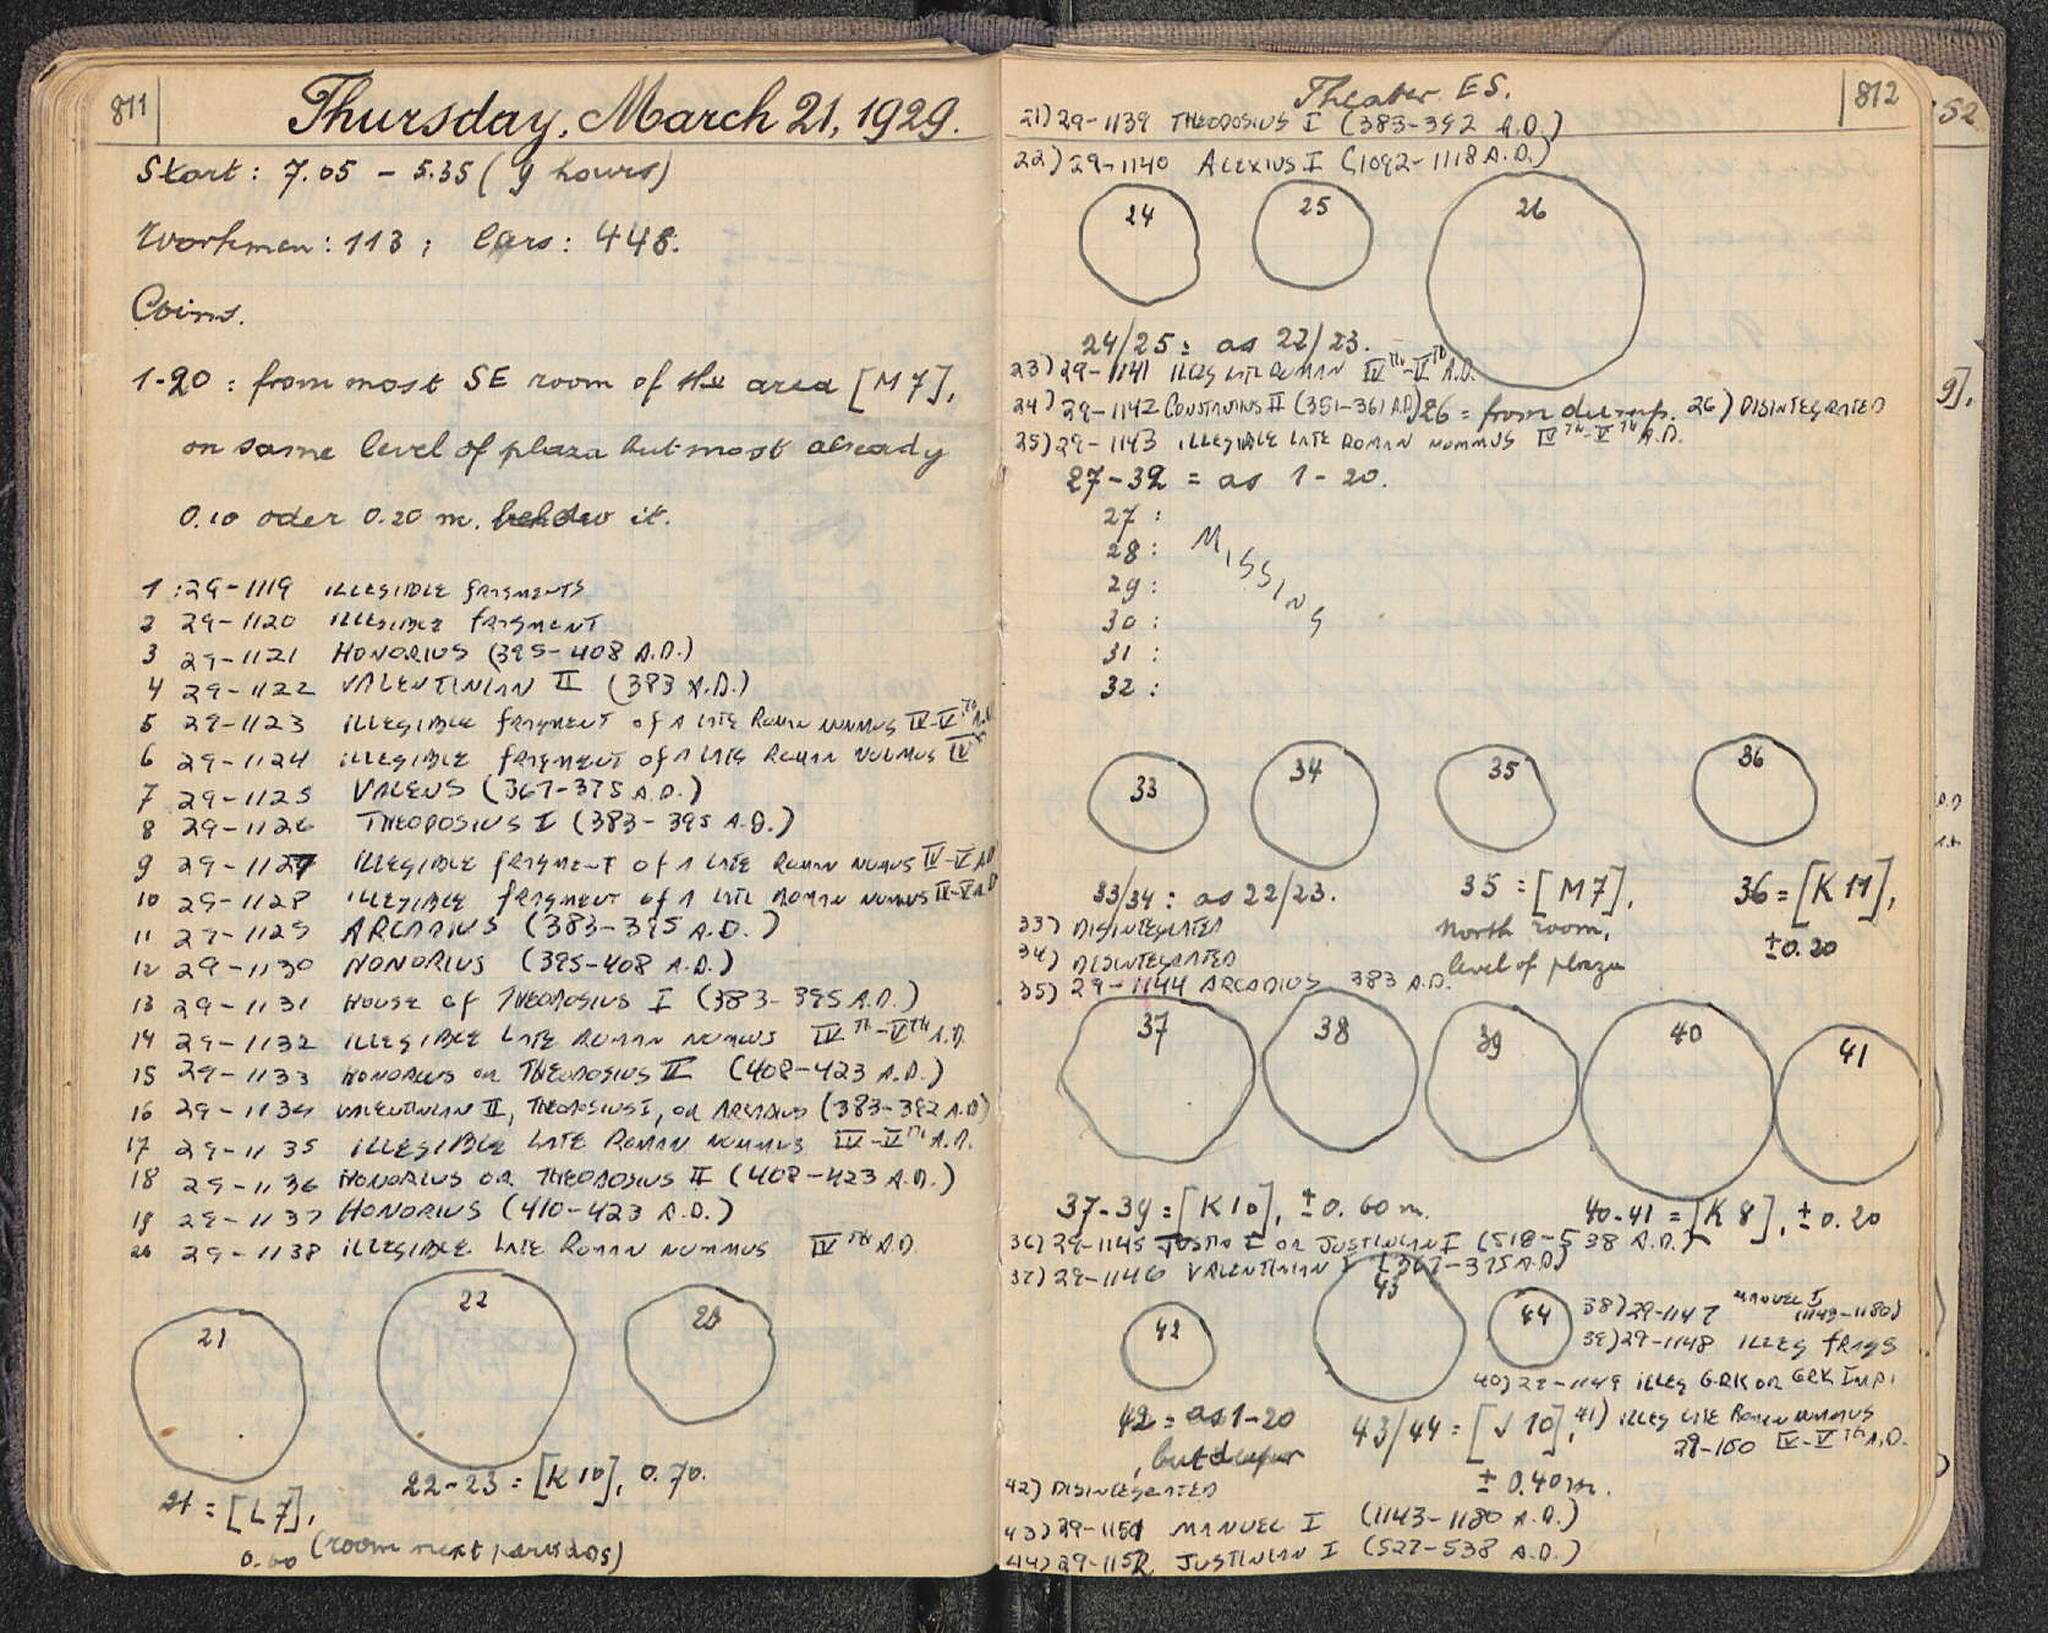 811
Thursday, March 21, 1929.
Start: 7.05 - 5.35 ( 9 hours)
Workmen: 113; Cars: 448.
Coins.
1-20 : from most SE room of the area [M7],
on same level of plaza but most already
0.10 oder 0.20 m. below it.
1 : 29-1119 ILLEGIBLE FRAGMENTS
2 29-1120 ILLEGIBLE FRAGMENT
3 29-1121 HONORIUS (395-408 A.D.)
4 29-1122 VALENTINIAN II (383 A.D.)
5 29-1123 ILLEGIBLE FRAGMENT OF A LATE ROMAN NUMMUS IV-VTH A.D
6 29-1124 ILLEGIBLE FRAGMENT OF A LATE ROMAN NUMMUS IVTH
7 29-1125 VALENS (367-375 A.D.)
8 29-1126 THEODOSIUS I (383-395 A.D.)
9 29-1127 ILLEGIBLE FRAGMENT OF A LATE ROMAN NUMMUS IV-V A.D
10 29-1128 ILLEGIBLE FRAGMENT OF A LATE ROMAN NUMMUS IV-V A.D
11 29-1129 ARCADIUS (383-395 A.D.)
12 29-1130 HONORIUS (395-408 A.D.)
13 29-1131 HOUSE OF THEODOSIUS I (383-395 A.D.)
14 29-1132 ILLEGIBLE LATE ROMAN NUMMUS IVTH-VTH A.D.
15 29-1133 HONORIUS OR THEODOSIUS II (408-423 A.D.)
16 29-1134 VALENTINIAN II, THEODOSIUS I, OR ARCADIUS (383-392 A.D)
17 29-1135 ILLEGIBLE LATE ROMAN NUMMUS IV-VTH A.D.
18 29-1136 HONORIUS OR THEODOSIUS II (408-423 A.D.)
19 29-1137 HONORIUS (410-423 A.D.)
20 29-1138 ILLEGIBLE LATE ROMAN NUMMUS IVTH A.D.
21 22 23
22-23 = [K 10], 0.70.
21 = [L7],
0.60 (room next parodos)
Theater ES.
812
21) 29-1139 THEODOSIUS I (383-392 A.D.)
22) 29-1140 ALEXIUS I (1092-1118 A.D.)
24 25 26
24/25 = as 22/23.
23) 29-1141 ILLEG LATE ROMAN IVTH-VTH A.D.
24) 29-1142 CONSTANTIUS II (351-361 A.D) 26 = from dump. 26) DISINTEGRATED
25) 29-1143 ILLEGIBLE LATE ROMAN NUMMUS IVTH-VTH A.D.
27-32 = as 1-20.
27 :
28 : MISSING
29 :
30 :
31 :
32 :
33 34 35 36
33/34 : as 22/23. 35 = [M7], 36 = [K 11],
33) DISINTEGRATED north room, ±0.20
34) DISINTEGRATED level of plaza
35) 29-1144 ARCADIUS 383 A.D.
37 38 39 40 41
37-39 = [K10], ±0.60 m. 40-41 = [K 8], ±0.20
36) 29-1145 JUSTIN I OR JUSTINIAN I (518-538 A.D.)
37) 29-1146 VALENTINIAN I (367-375 A.D)
42 43 44
38) 29-1147 MANUEL I (1143-1180)
39) 29-1148 ILLEG FRAGS
40) 29-1149 ILLEG GRK OR GRK IMP.
42 = as 1-20 43/44 = [J 10], 41) ILLEG LATE ROMAN NUMMUS
, but deeper 29-1150 IV-VTH A.D.
42) DISINTEGRATED ±0.40 m.
43) 29-1151 MANUEL I (1143-1180 A.D.)
44) 29-1152 JUSTINIAN I (527-538 A.D.)
52
9],